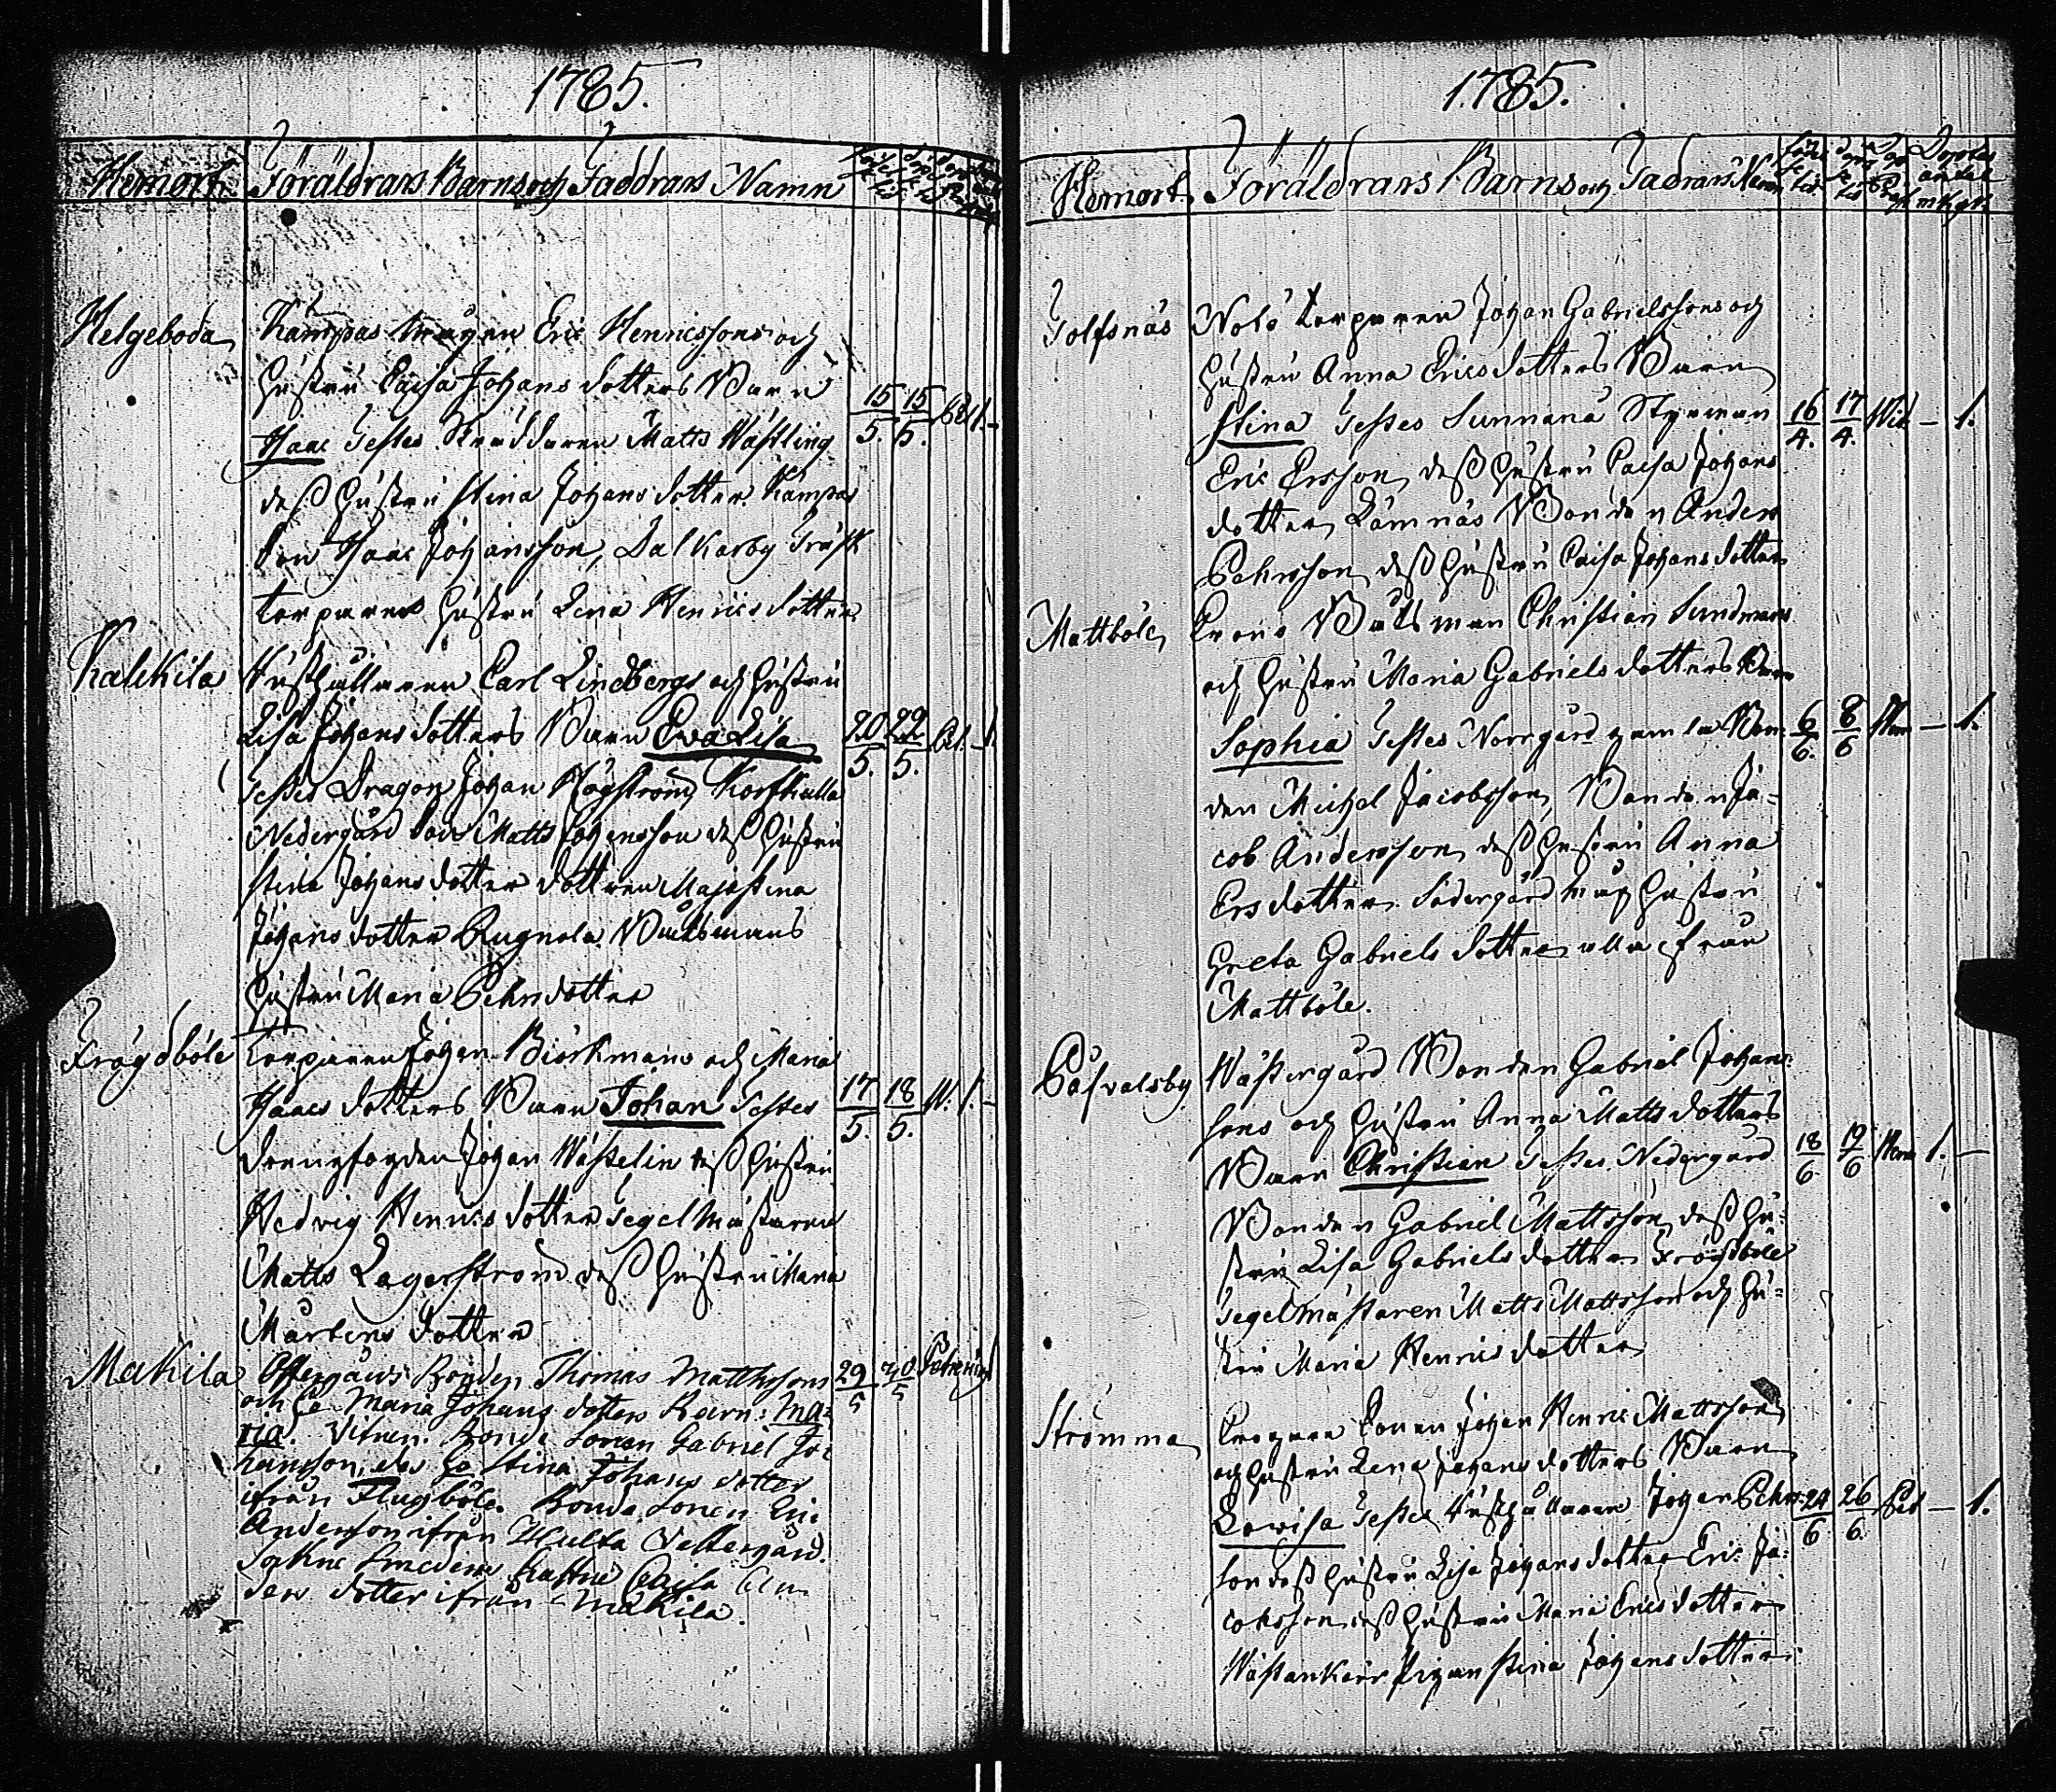 1785.
Hemort. Föräldrars Barns och Faddrars Namn
Helgeboda Kämpas mågen Eric Henricssons och
hustru Caisa Johans dotters Barn
Isaac Testes Skräddaren Matts Wästling 15/5. 15/5. 1.
dess hustru Stina Johans dotter. Kämpas
Son Isaac Johansson, Dalkarby Träsk
torparens hustru Lena Henrics dotter
Kalkila Husthållaren Carl Lindbergs och hustru
Lisa Johans dotters Barn Eva Lisa 20/5. 22/5.
Testes Dragon Johan Högström, Korskulla
Nedergård Matts Johansson dess hustru
Stina Johans dotter dottren Maja Stina
Johans dotter Rugnola Båtsmans
hustru Maria Pehrsdotter
Frögdböle Torparen Johan Biörkmans och Maria
Isaacs dotters Barn Johan Testes 17/5. 18/5. W. 1.
drengfogden Johan Wästelin dess hustru
Hedvig Henrics dotter Tegelmästaren
Matts Lagerström dess hustru Maria
Mårtens dotter
Makila Offergårds Bonden Thomas Matthssons 29/5 30/5
och Maria Johans dotters Barn: Ma-
ria. Vitnen. Bonde Sonen Gabriel Jo-
hansson, des Stina Johans dotter
ifrån Flugböle. Bonde Sonen Eric
Andersson ifrån Hulta Vestergård.
Sokne Smedens hustru Caisa An-
ders dotter ifrån Makila.
1785.
Hemort. Föräldrars Barns och Fadrars Namn
Tolfsnäs Nolö Torparen Johan Gabrielssons och
hustru Anna Ericsdotters Barn
Stina Testes Sunnanå Styrman 16/4. 17/4. Wid — 1.
Eric Ersson, dess hustru Caisa Johans
dotter, Lämnäs Bonden Anders
Pehrsson dess hustru Caisa Johans dotter
Mattböle, Crono Båtsman Christian Sundmans
och hustru Maria Gabriels dotters Barn
Sophia Testes Norrgård gamla Bon- 6/6. 8/6 — 1.
den Michel Jacobsson, Bonden Ja-
cob Andersson dess hustru Anna
Ersdotter. Södergård måg hustru
Greta Gabriels dotter alla ifrån
Mattböle.
Påfvalsby Wästergård Bonden Gabriel Johans-
sons och hustru Anna Matts dotters
Barn Christian Testes Nedergård 18/6. 19/6 1. —
Bonden Gabriel Mattsson, dess hu-
stru Lisa Gabriels dotter Frögdböle
Tegelmästaren Matts Mattsson och hu-
stru Maria Henrics dotter
Strömma Johan Henric Mattsson
och hustru Lena Johans dotters Barn
Lovisa Testes Husthållaren Johan Pehrs- 24/6 26/6. Ped — 1.
son dess hustru Lisa Johans dotter Eric Ja-
cobsson dess hustru Maria Erics dotter
Wästankärr pigan Stina Johans dotter